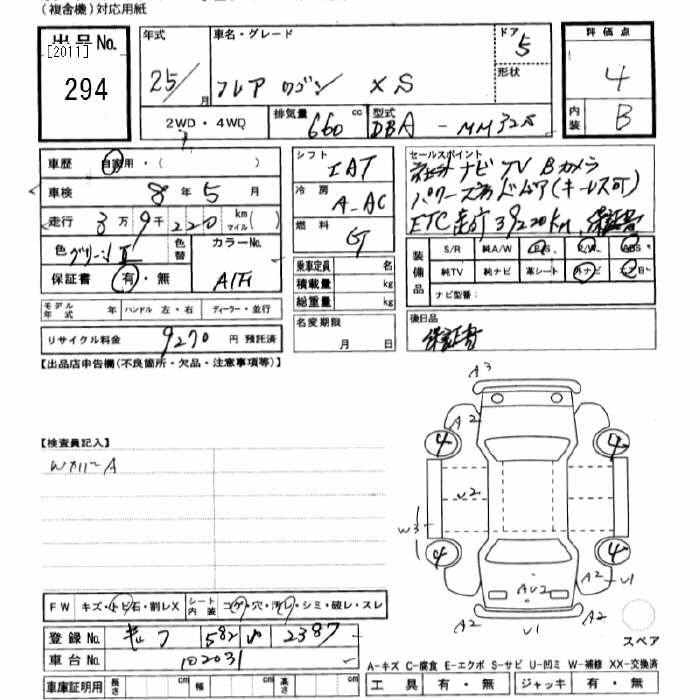 (複含機)対応用紙
出品No.
[2011]
294
年式
25/
月
車名・グレード
フレア ワゴン XS
ドア
5
形状
評価点
4
内装
B
2WD・4WD
排気量
660
cc
型式
DBA - MM32S
車歴
自家用・( )
車検
8 年 5 月
走行
3 万 9 千 220
km
マイル( )
色
グリーンII
色替
カラーNo.
保証書
有・無
モデル年式
年
ハンドル 左・右
ディーラー・並行
リサイクル料金
9270
円 預託済
シフト
IAT
冷房
A-AC
燃料
G
乗車定員
名
積載量
kg
総重量
kg
名変期限
月 日
セールスポイント
ナビ TV Bカメラ
ETC 走行 39220km 保証書
装備品
S/R
純A/W
P/S
P/W
ABS
純TV
純ナビ
革シート
外ナビ
エアB
ナビ型番:
後日品
保証書
【出品店申告欄(不良箇所・欠品・注意事項等)】
【検査員記入】
A3
A2
4
4
U2
W3
4
4
A2
A2
U1
AU2
A2
A2
U1
スペア
FW
キズ・トビ石・割レX
シート内装
コゲ・穴・汚レ・シミ・破レ・スレ
登録No.
582
2387
車台No.
102031
車庫証明用
長さ
cm
幅
cm
高さ
cm
A-キズ C-腐食 E-エクボ S-サビ U-凹ミ W-補修 XX-交換済
工具
有・無
ジャッキ
有・無